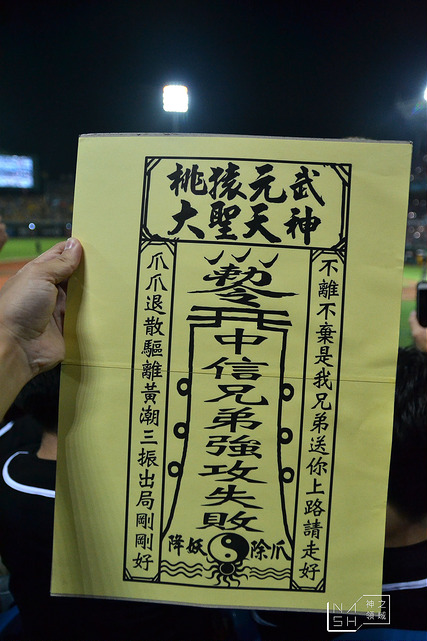 桃猿元武
大聖天神
不離不棄是我兄弟送你上路請走好
敕令
中信兄弟強攻失敗
爪爪退散驅離黃潮三振出局剛剛好
降妖除爪
NASH
神之領域